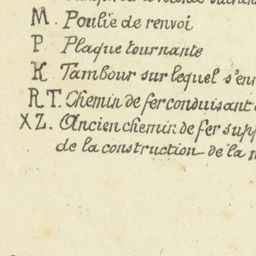 M. Poulie de renvoi
P Plaque tournante
K Tambour sur lequel s'en
R T. Chemin de fer conduisant
X Z. Ancien chemin de fer supp
de la construction de la